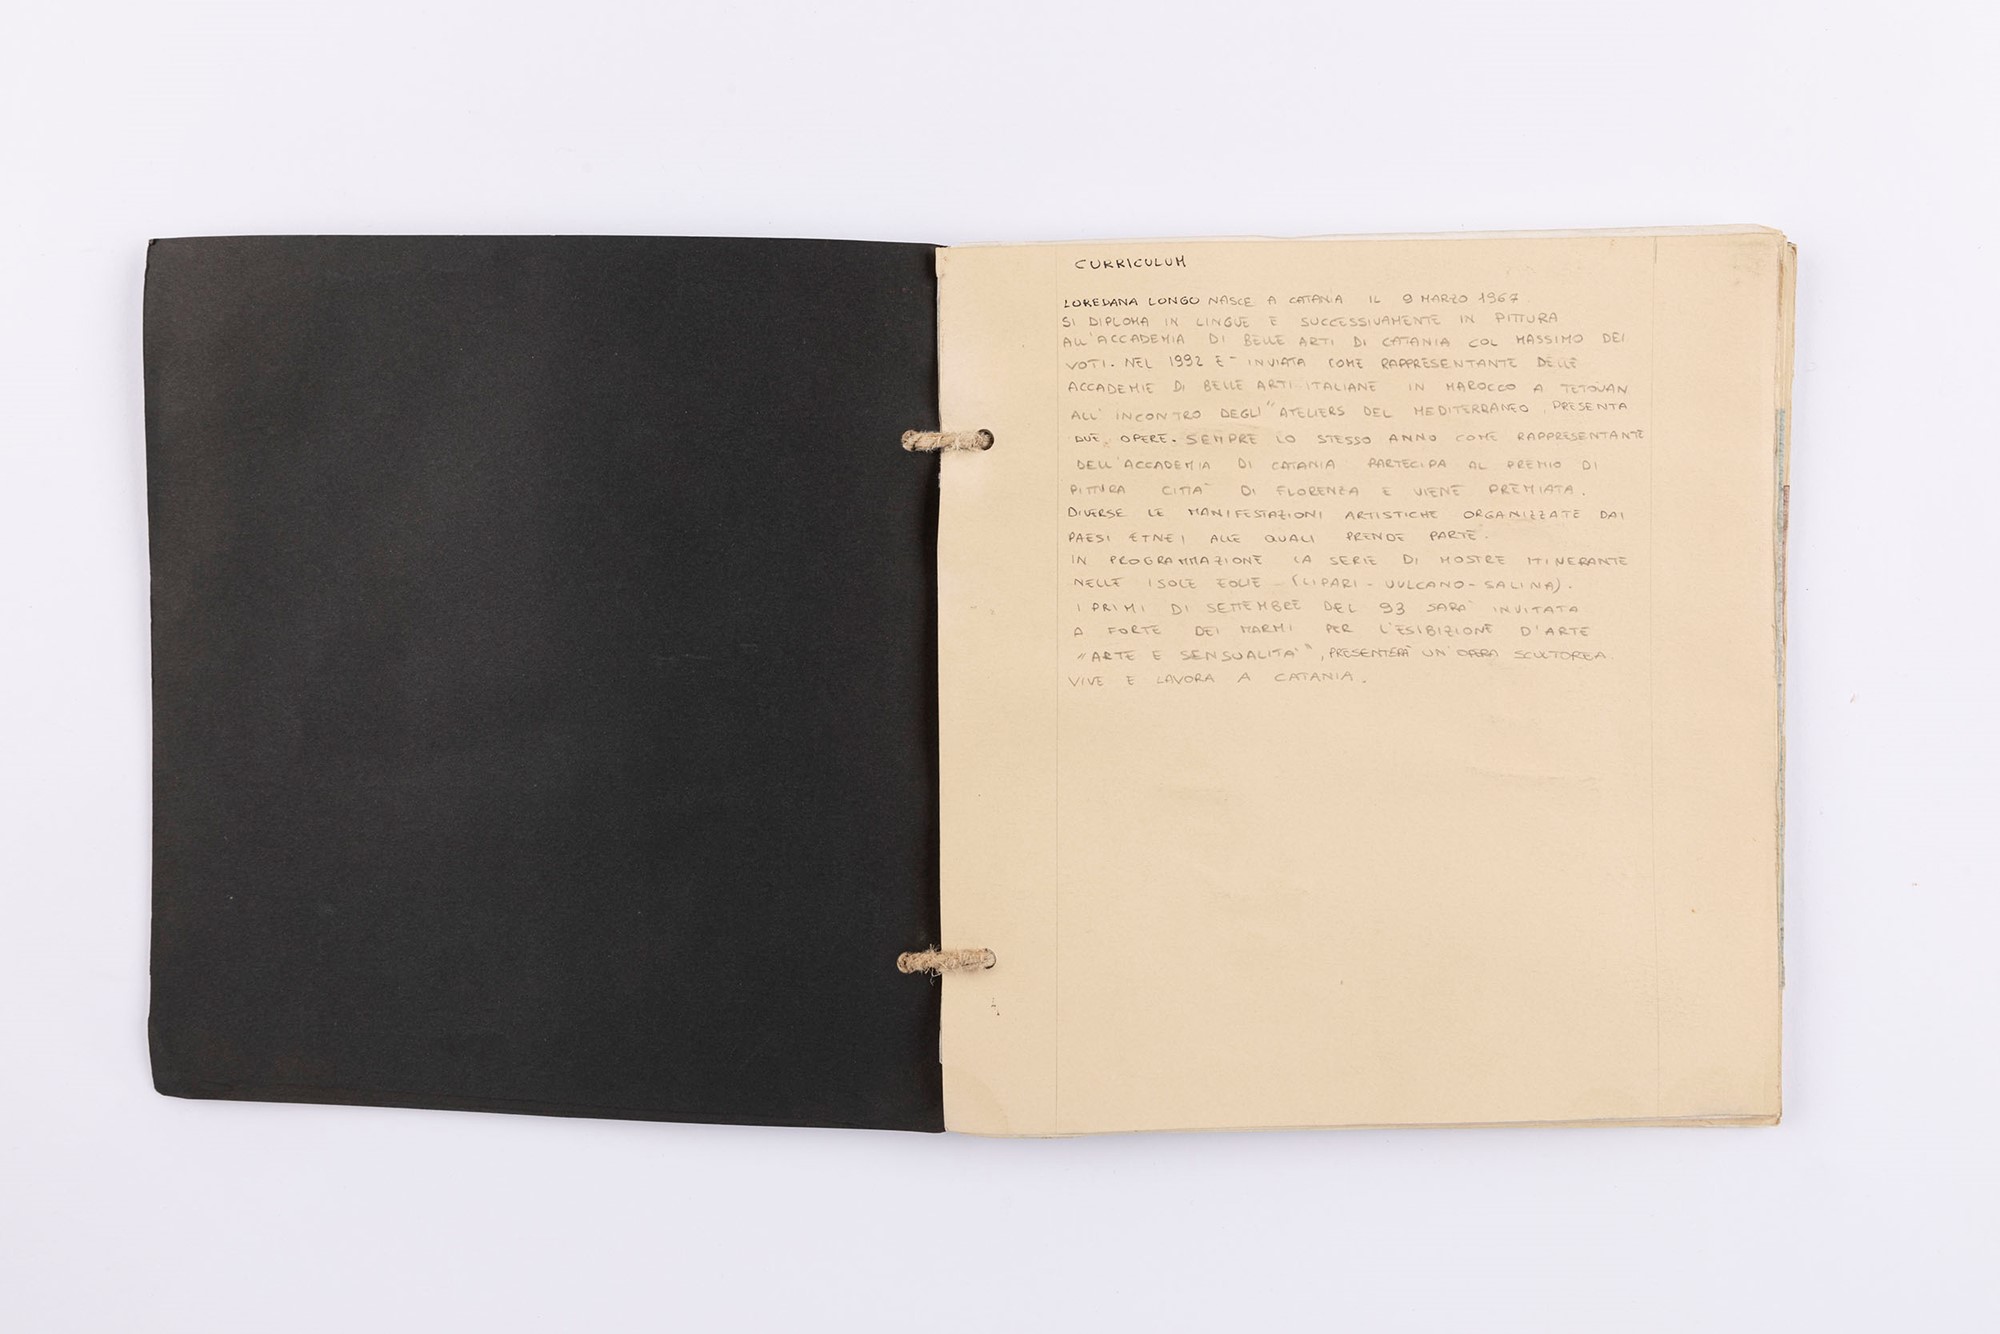 CURRICULUM
LOREDANA LONGO NASCE A CATANIA IL 9 MARZO 1967.
SI DIPLOMA IN LINGUE E SUCCESSIVAMENTE IN PITTURA
ALL'ACCADEMIA DI BELLE ARTI DI CATANIA COL MASSIMO DEI
VOTI. NEL 1992 E' INVIATA COME RAPPRESENTANTE DELLE
ACCADEMIE DI BELLE ARTI ITALIANE IN MAROCCO A TETOUAN
ALL' INCONTRO DEGLI "ATELIERS DEL MEDITERRANEO, PRESENTA
DUE OPERE. SEMPRE LO STESSO ANNO COME RAPPRESENTANTE
DELL'ACCADEMIA DI CATANIA PARTECIPA AL PREMIO DI
PITTURA CITTA' DI FLORENZA E VIENE PREMIATA.
DIVERSE LE MANIFESTAZIONI ARTISTICHE ORGANIZZATE DAI
PAESI ETNEI ALLE QUALI PRENDE PARTE.
IN PROGRAMMAZIONE LA SERIE DI MOSTRE ITINERANTE
NELLE ISOLE EOLIE - (LIPARI - VULCANO - SALINA).
I PRIMI DI SETTEMBRE DEL 93 SARA' INVITATA
A FORTE DEI MARMI PER L'ESIBIZIONE D'ARTE
"ARTE E SENSUALITA'", PRESENTERÀ UN'OPERA SCULTOREA.
VIVE E LAVORA A CATANIA.